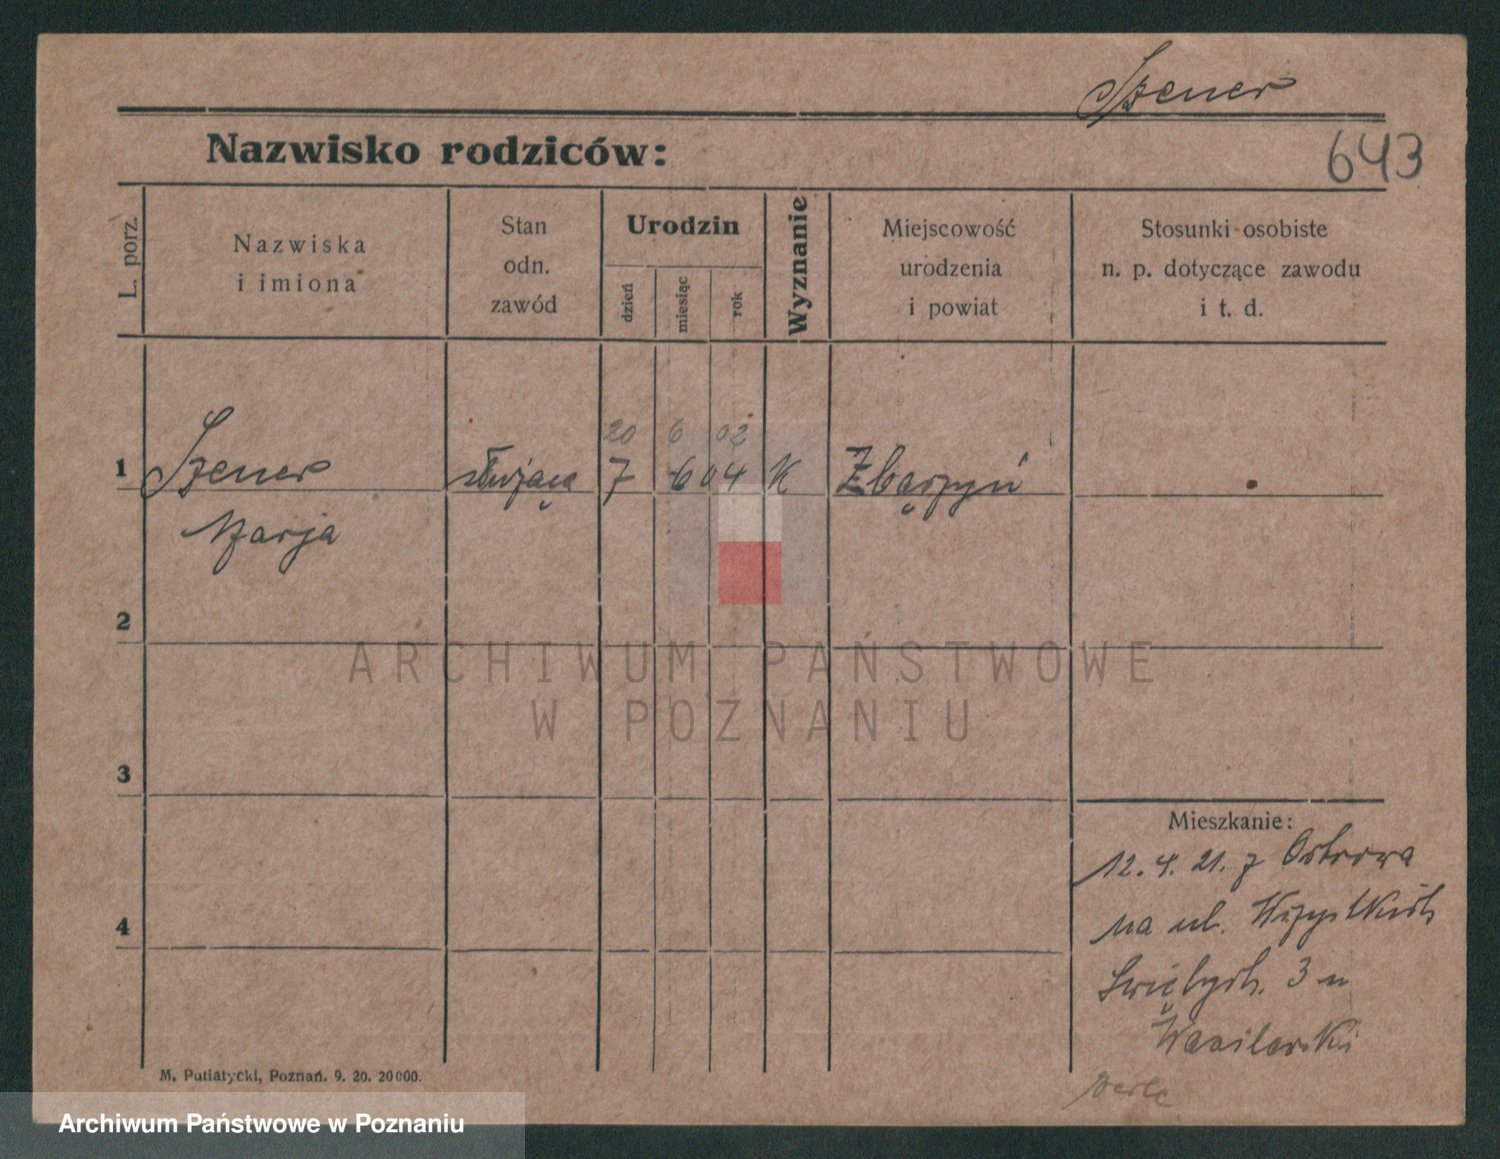 Szener
643
Nazwisko rodziców:
L. porz.
Nazwiska
i imiona
Stan
odn.
zawód
Urodzin
dzień
miesiąc
rok
Wyznanie
Miejscowość
urodzenia
i powiat
Stosunki osobiste
n. p. dotyczące zawodu
i t. d.
20 6 02
1 Szener służąca 7 6 04 K Zbąszyń
Marja
2
ARCHIWUM PAŃSTWOWE
W POZNANIU
3
Mieszkanie:
12.4.21. z Ostrowa
4
na ul. Wszystkich
Świętych. 3 u
M. Putiatycki, Poznań. 9. 20. 20000.
Archiwum Państwowe w Poznaniu